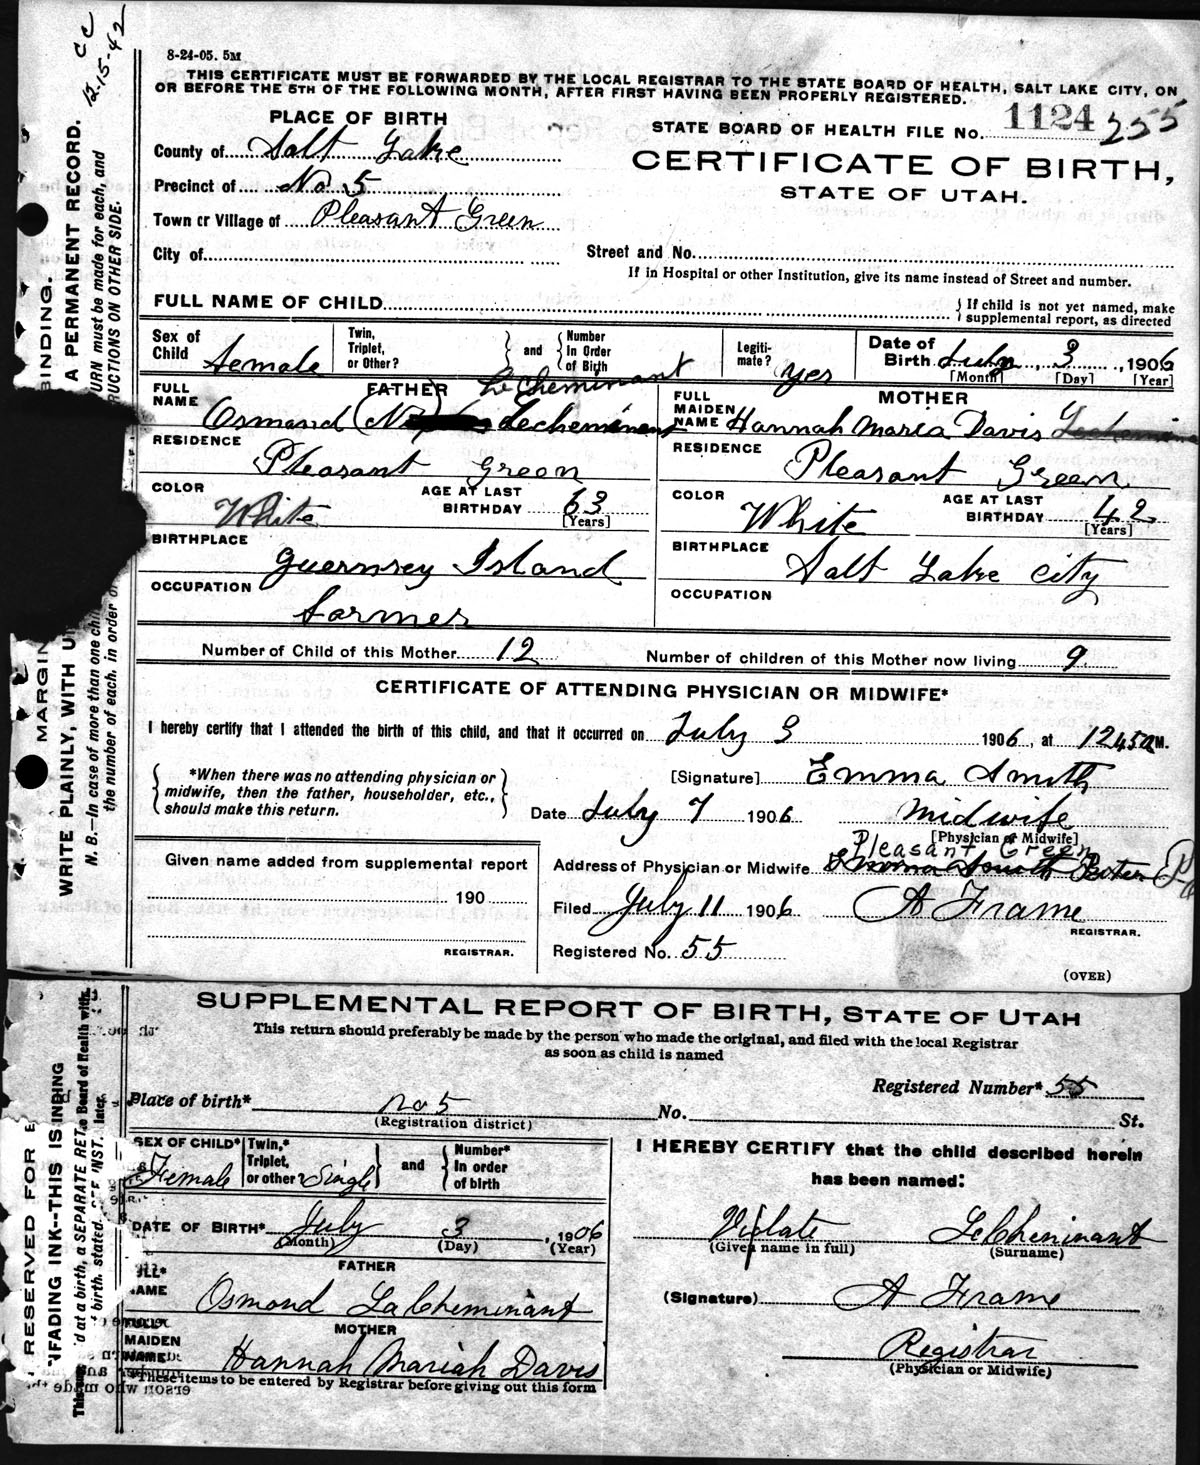 CC
12-15-42
8-24-05. 5M
THIS CERTIFICATE MUST BE FORWARDED BY THE LOCAL REGISTRAR TO THE STATE BOARD OF HEALTH, SALT LAKE CITY, ON
OR BEFORE THE 5TH OF THE FOLLOWING MONTH, AFTER FIRST HAVING BEEN PROPERLY REGISTERED.
PLACE OF BIRTH
STATE BOARD OF HEALTH FILE NO. 1124 255
County of Salt Lake
CERTIFICATE OF BIRTH,
Precinct of No 5
STATE OF UTAH.
Town or Village of Pleasant Green
City of
Street and No.
If in Hospital or other Institution, give its name instead of Street and number.
FULL NAME OF CHILD
{ If child is not yet named, make
supplemental report, as directed
Sex of Child Female
Twin, Triplet, or Other? } and { Number In Order of Birth
Legiti- mate? Yes
Date of Birth July 3, 1906
[Month] [Day] [Year]
FATHER
FULL NAME Osmand (N) Lecheminant
LeCheminant
MOTHER
FULL MAIDEN NAME Hannah Maria Davis
RESIDENCE Pleasant Green
RESIDENCE Pleasant Green
COLOR White
AGE AT LAST BIRTHDAY 63 [Years]
COLOR White
AGE AT LAST BIRTHDAY 42 [Years]
BIRTHPLACE Guernsey Island
BIRTHPLACE Salt Lake City
OCCUPATION farmer
OCCUPATION
Number of Child of this Mother 12
Number of children of this Mother now living 9
CERTIFICATE OF ATTENDING PHYSICIAN OR MIDWIFE*
I hereby certify that I attended the birth of this child, and that it occurred on July 3 1906, at 1245 a M.
{ *When there was no attending physician or
midwife, then the father, householder, etc.,
should make this return. }
[Signature] Emma Smith
Date July 7 1906 midwife
[Physician or Midwife]
Given name added from supplemental report
190
REGISTRAR.
Pleasant Green
Address of Physician or Midwife Emma Smith
Filed July 11 1906 A Frame
REGISTRAR.
Registered No. 55
(OVER)
BINDING.
A PERMANENT RECORD.
URN must be made for each, and
RUCTIONS ON OTHER SIDE.
MARGIN
WRITE PLAINLY, WITH U
N. B.—In case of more than one chi
the number of each, in order o
SUPPLEMENTAL REPORT OF BIRTH, STATE OF UTAH
This return should preferably be made by the person who made the original, and filed with the local Registrar
as soon as child is named
Registered Number* 55
Place of birth* no 5 No. St.
(Registration district)
SEX OF CHILD* Female
Twin,* Triplet, or other Single } and { Number* In order of birth
I HEREBY CERTIFY that the child described herein
has been named:
DATE OF BIRTH* July 3, 1906
(Month) (Day) (Year)
Violate LeCheminant
(Given name in full) (Surname)
FATHER
ULL* NAME Osmond LaCheminant
(Signature) A Frame
MOTHER
MAIDEN NAME Hannah Mariah Davis
Registrar
(Physician or Midwife)
These items to be entered by Registrar before giving out this form
RESERVED FOR B
INDING
NFADING INK--THIS IS
d at a birth, a SEPARATE RET
birth. stated.
e Board of Health with
later.